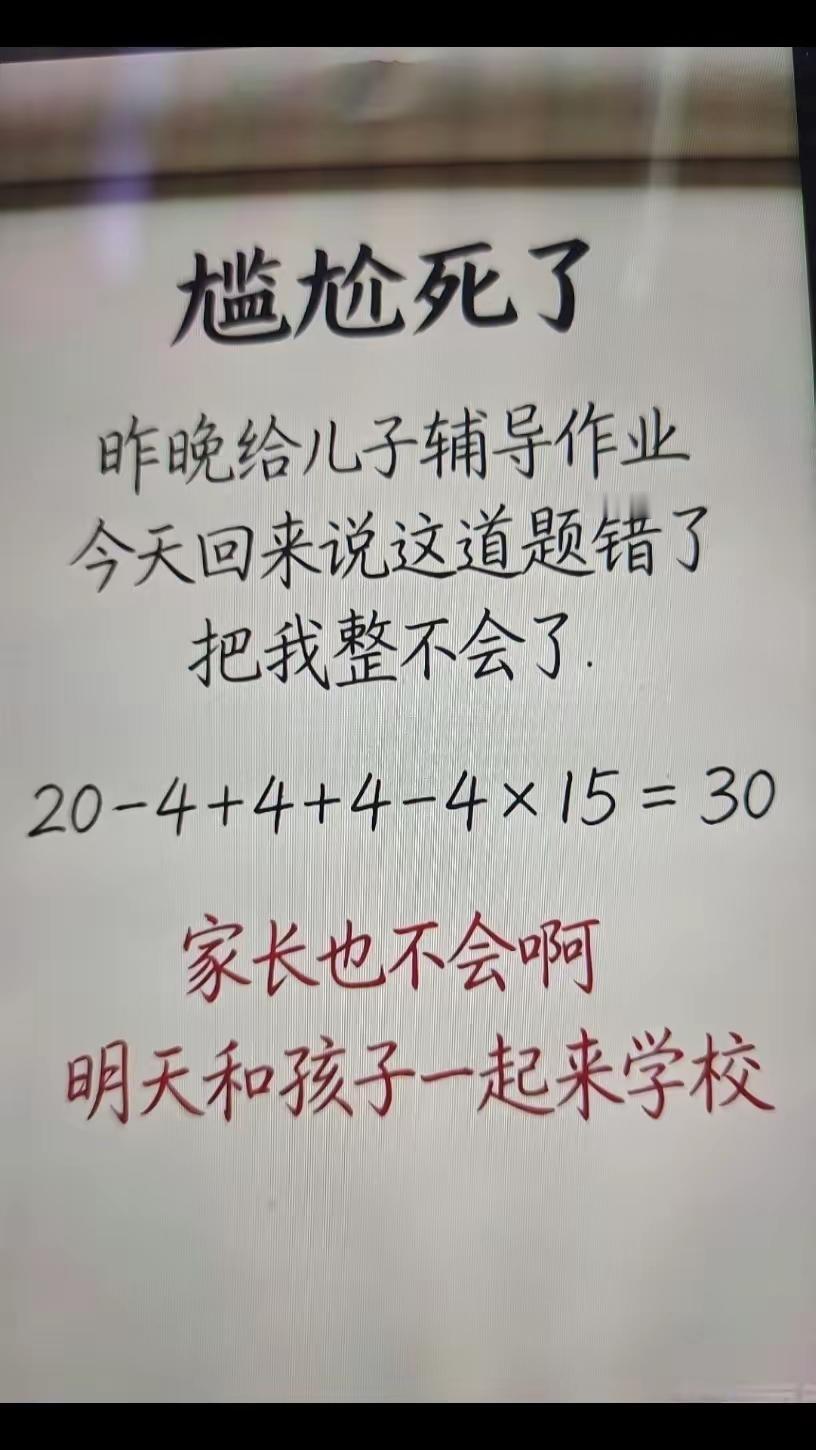 尴尬死了
昨晚给儿子辅导作业
今天回来说这道题错了
把我整不会了.
20-4+4+4-4×15=30
家长也不会啊
明天和孩子一起来学校